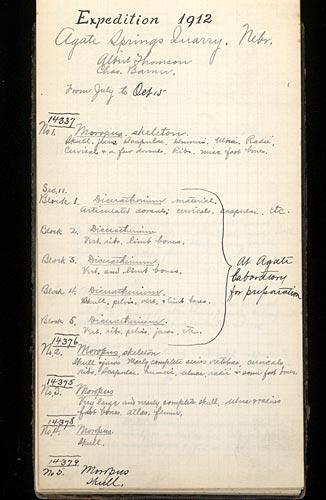 Expedition 1912
Agate Springs Quarry, Nebr.
Albert Thomson
Chas. Barner.
From July to Oct. 15
14337
No. 1. Moropus skeleton.
Skull, jaws, Scapulae, Humeri, Ulnae, Radii,
Cervical & a few dorsals, Ribs. misc foot bones.
Sec. 11.
Block 1. Diceratherium material.
Articulated dorsals, cervicals, scapulae, etc.
Block 2. Diceratherium
Vrt. ribs, limb bones.
Block 3. Diceratherium,
Vrt. and limb bones.
Block 4. Diceratherium.
Skull, pelvis, vert. & limb bones.
Block 5. Diceratherium.
Vrt. ribs, pelvis, jaws, etc.
At Agate
Laboratory
for preparation
14376
No. 2. Moropus skeleton
Skull & jaws Nearly complete series vertebrae, cervicals
ribs, Scapulae, humeri, ulnae, radii & some foot bones.
14375
No. 3. Moropus
Very large and nearly complete skull, ulna & radius
foot bones, atlas, femur,
14378
No. 4. Moropus
Skull.
14379
No. 5. Moropus
Skull.